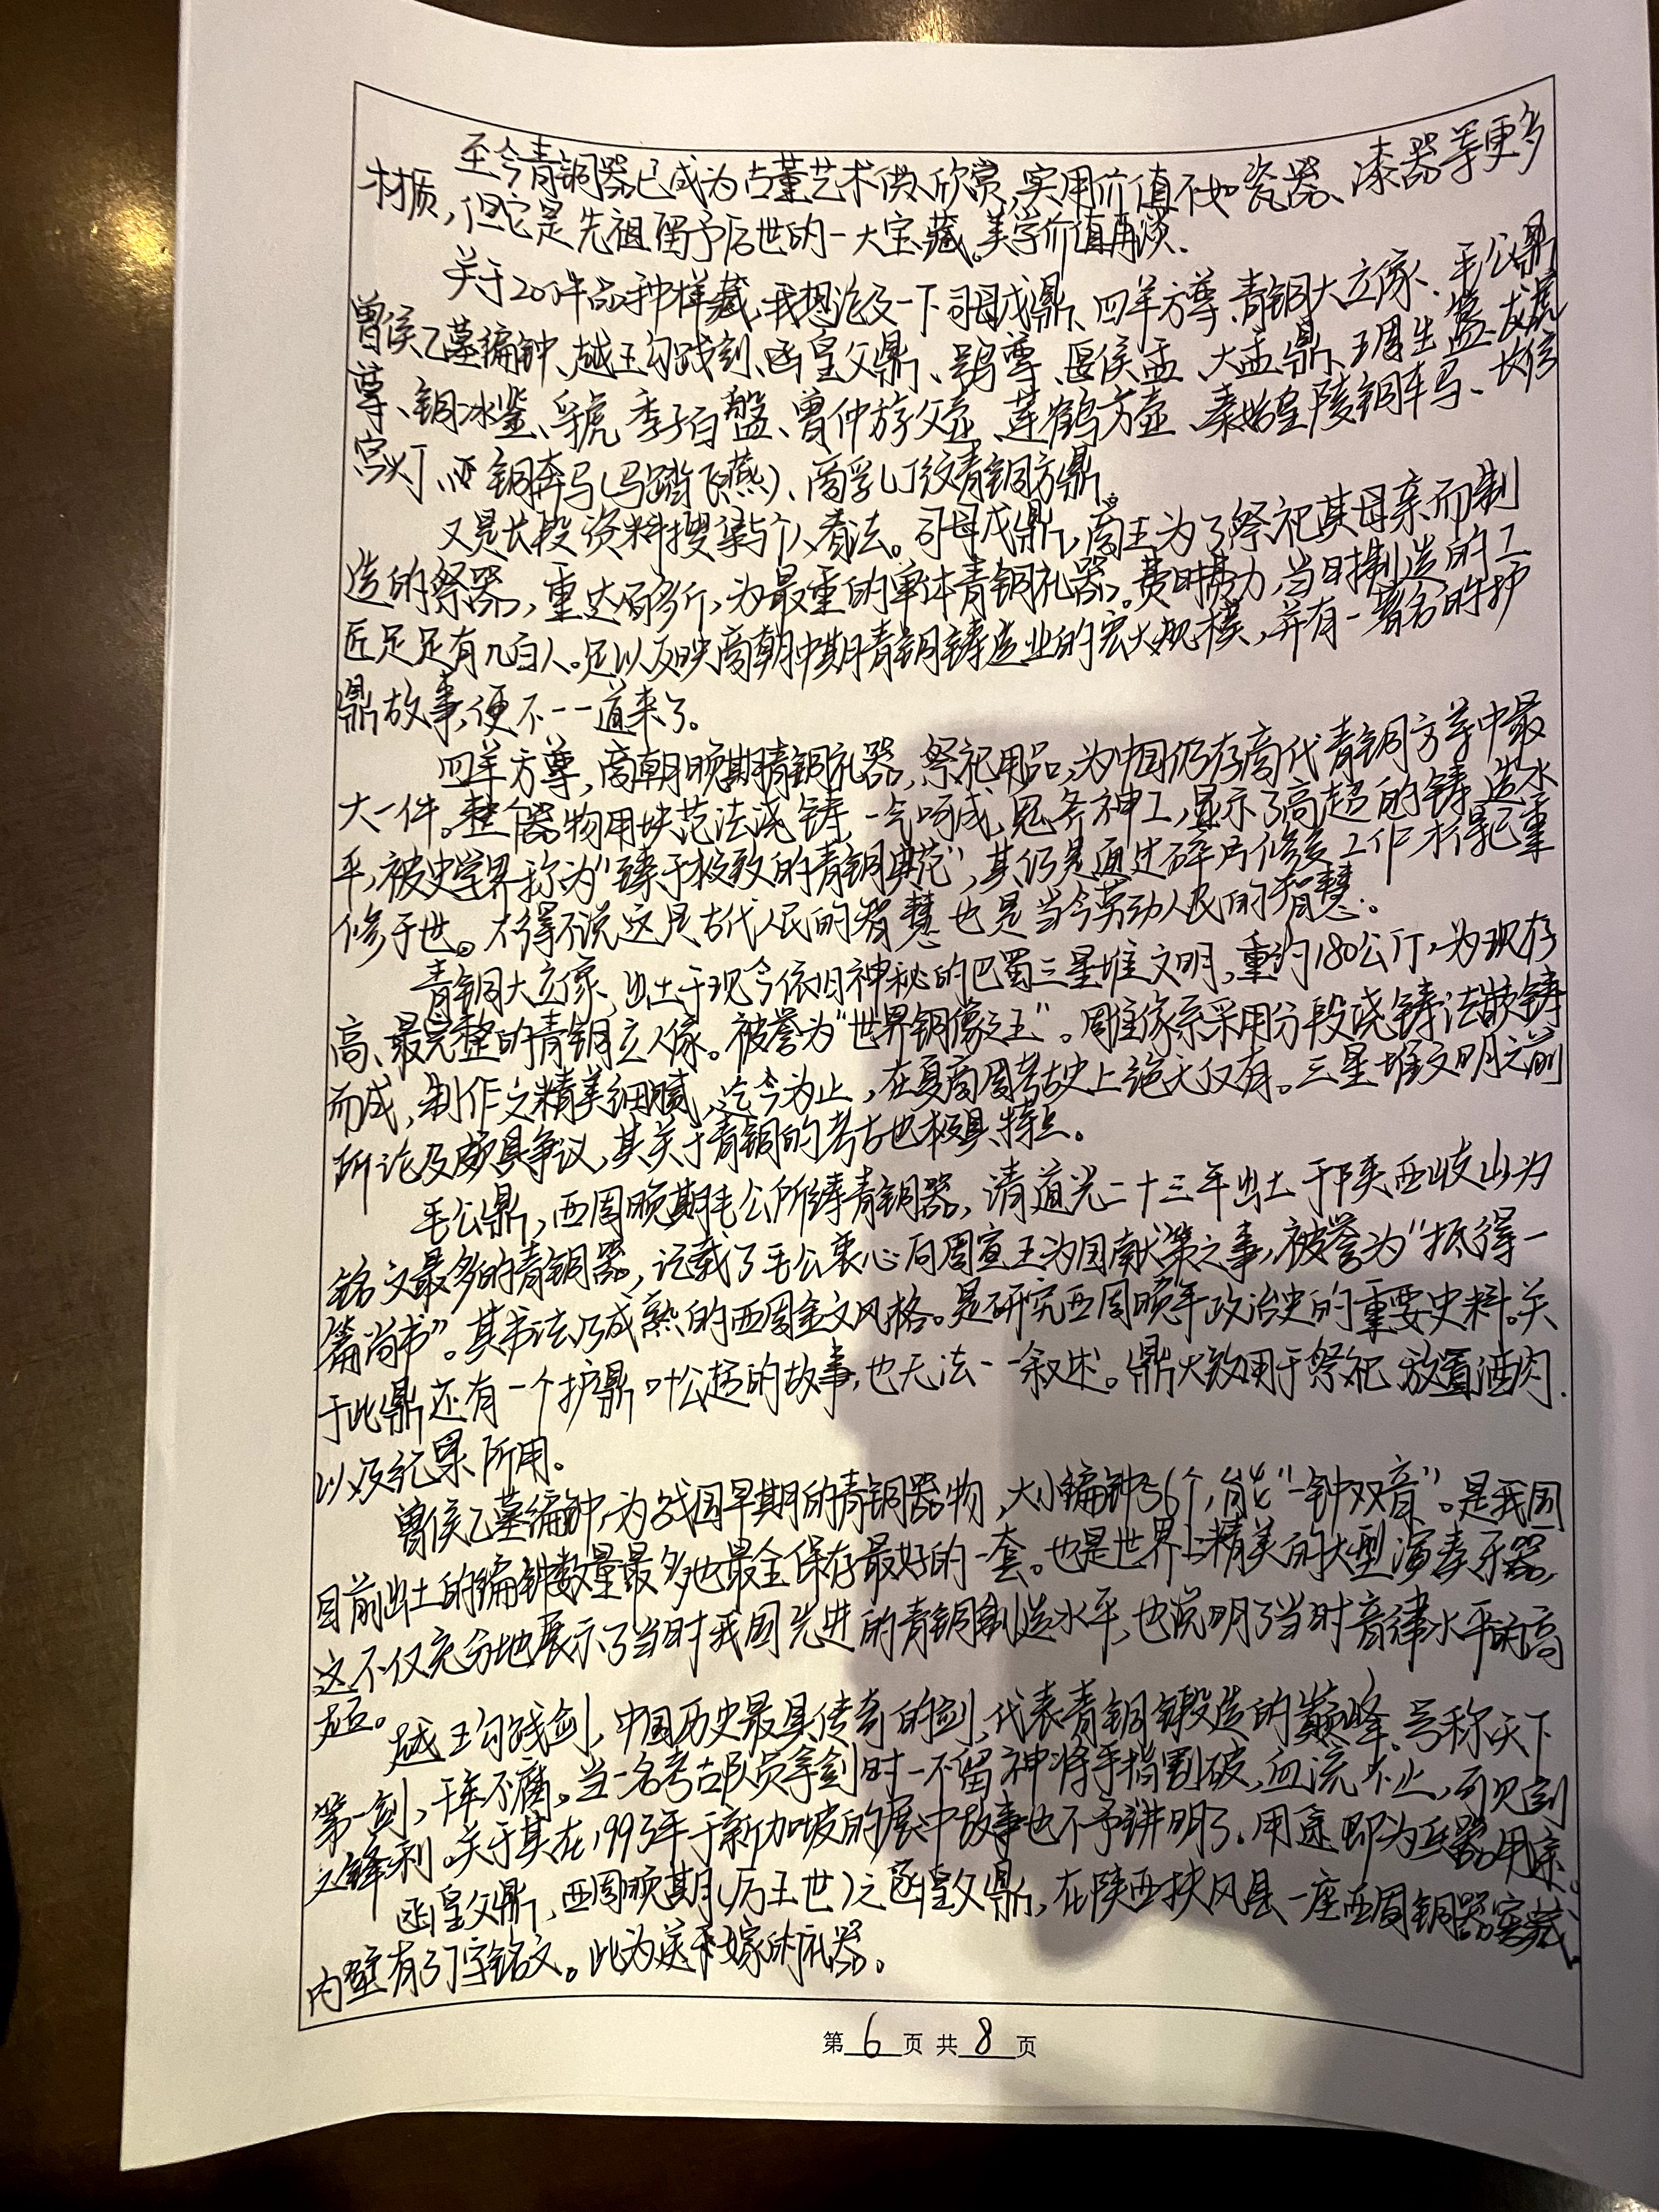 至今青铜器已成为古董艺术供人欣赏,实用价值不如瓷器、漆器等更多
材质,但它是先祖留予后世的一大宝藏。美学价值再谈。
关于200件品种样藏,我想论及一下司母戊鼎、四羊方尊、青铜大立像、毛公鼎
曾侯乙墓编钟、越王勾践剑、函皇父鼎、鸮尊、匽侯盂、大盂鼎、琱生簋、龙虎
尊、铜冰鉴、虢季子白盘、曾仲斿父壶、莲鹤方壶、秦始皇陵铜车马、长信
宫灯、铜奔马(马踏飞燕)、商乳丁纹青铜方鼎。
又是长段资料搜集与个人看法。司母戊鼎,商王为了祭祀其母亲而制
造的祭器,重达百多斤,为最重的单体青铜礼器。费时费力,当时制造的工
匠足足有几百人。足以反映商朝中期青铜铸造业的宏大规模,并有一著名的护
鼎故事,便不一一道来了。
四羊方尊,商朝晚期青铜礼器,祭祀用品,为中国仍存商代青铜方尊中最
大一件。整个器物用块范法浇铸,一气呵成,鬼斧神工,显示了高超的铸造水
平,被史学界称为“臻于极致的青铜典范”,其仍是通过碎片修复工作才得已重
修于世。不得不说这是古代人民的智慧也是当今劳动人民的智慧。
青铜大立像,出土于现今依旧神秘的巴蜀三星堆文明,重约180公斤,为现存
高、最完整的青铜立人像。被誉为“世界铜像之王”。雕像系采用分段浇铸法嵌铸
而成,制作之精美细腻,迄今为止,在夏商周考古史上绝无仅有。三星堆文明之前
所论及颇具争议,其关于青铜的考古也极具特点。
毛公鼎,西周晚期毛公所铸青铜器,清道光二十三年出土于陕西岐山为
铭文最多的青铜器,记载了毛公衷心向周宣王为国献策之事,被誉为“抵得一
篇尚书”。其书法乃成熟的西周金文风格。是研究西周晚年政治史的重要史料。关
于此鼎还有一个护鼎叶公超的故事,也无法一一叙述。鼎大致用于祭祀放置酒肉
以及纪录所用。
曾侯乙墓编钟,为战国早期的青铜器物,大小编钟36个,能“一钟双音”。是我国
目前出土的编钟数量最多也最全保存最好的一套。也是世界上精美的大型演奏乐器,
这不仅充分地展示了当时我国先进的青铜制造水平,也说明了当时音律水平的高
超。
越王勾践剑,中国历史最具传奇的剑,代表青铜锻造的巅峰。号称天下
第一剑,千年不腐。当一名考古队员拿剑时一不留神将手指割破,血流不止,可见剑
之锋利。关于其在1993年于新加坡的展中故事也不予讲明了。用途即为兵器用系。
函皇父鼎,西周晚期(厉王世)之函皇父鼎,在陕西扶风县一座西周铜器窖藏。
内壁有37字铭文。此为送嫁的礼器。
第6页 共8页